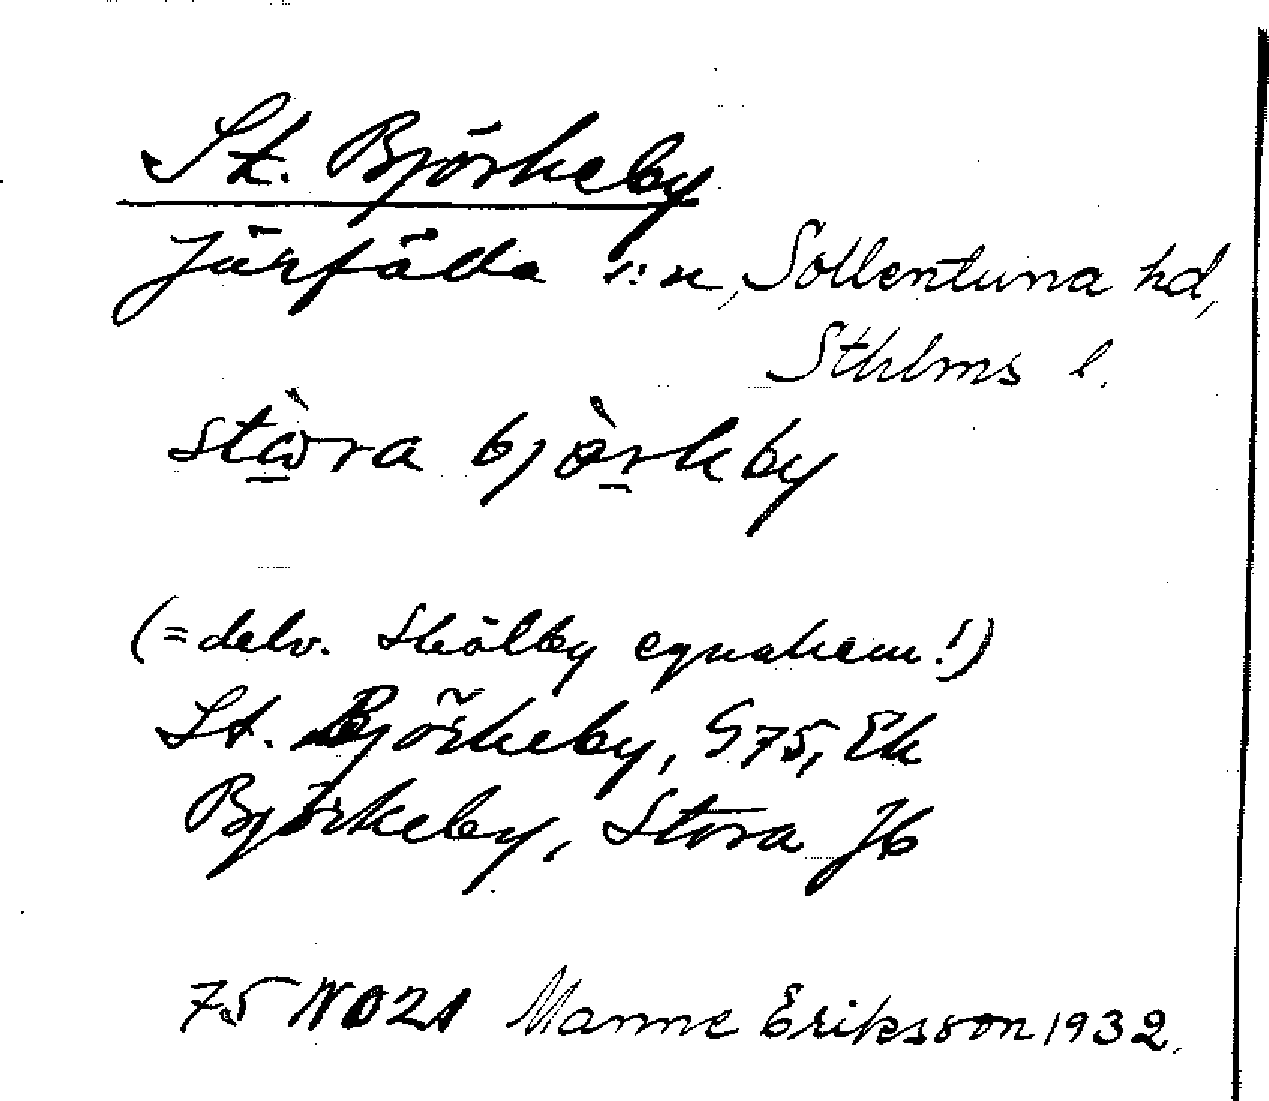 St. Björkeby
Järfälla s:n, Sollentuna hd,
Sthlms l.
stòra bjòrkby
(= delv. Skälby egnahem!)
St. Björkeby, G75, Ek
Björkeby, Stora Jb
75 NO21 Manne Eriksson 1932.